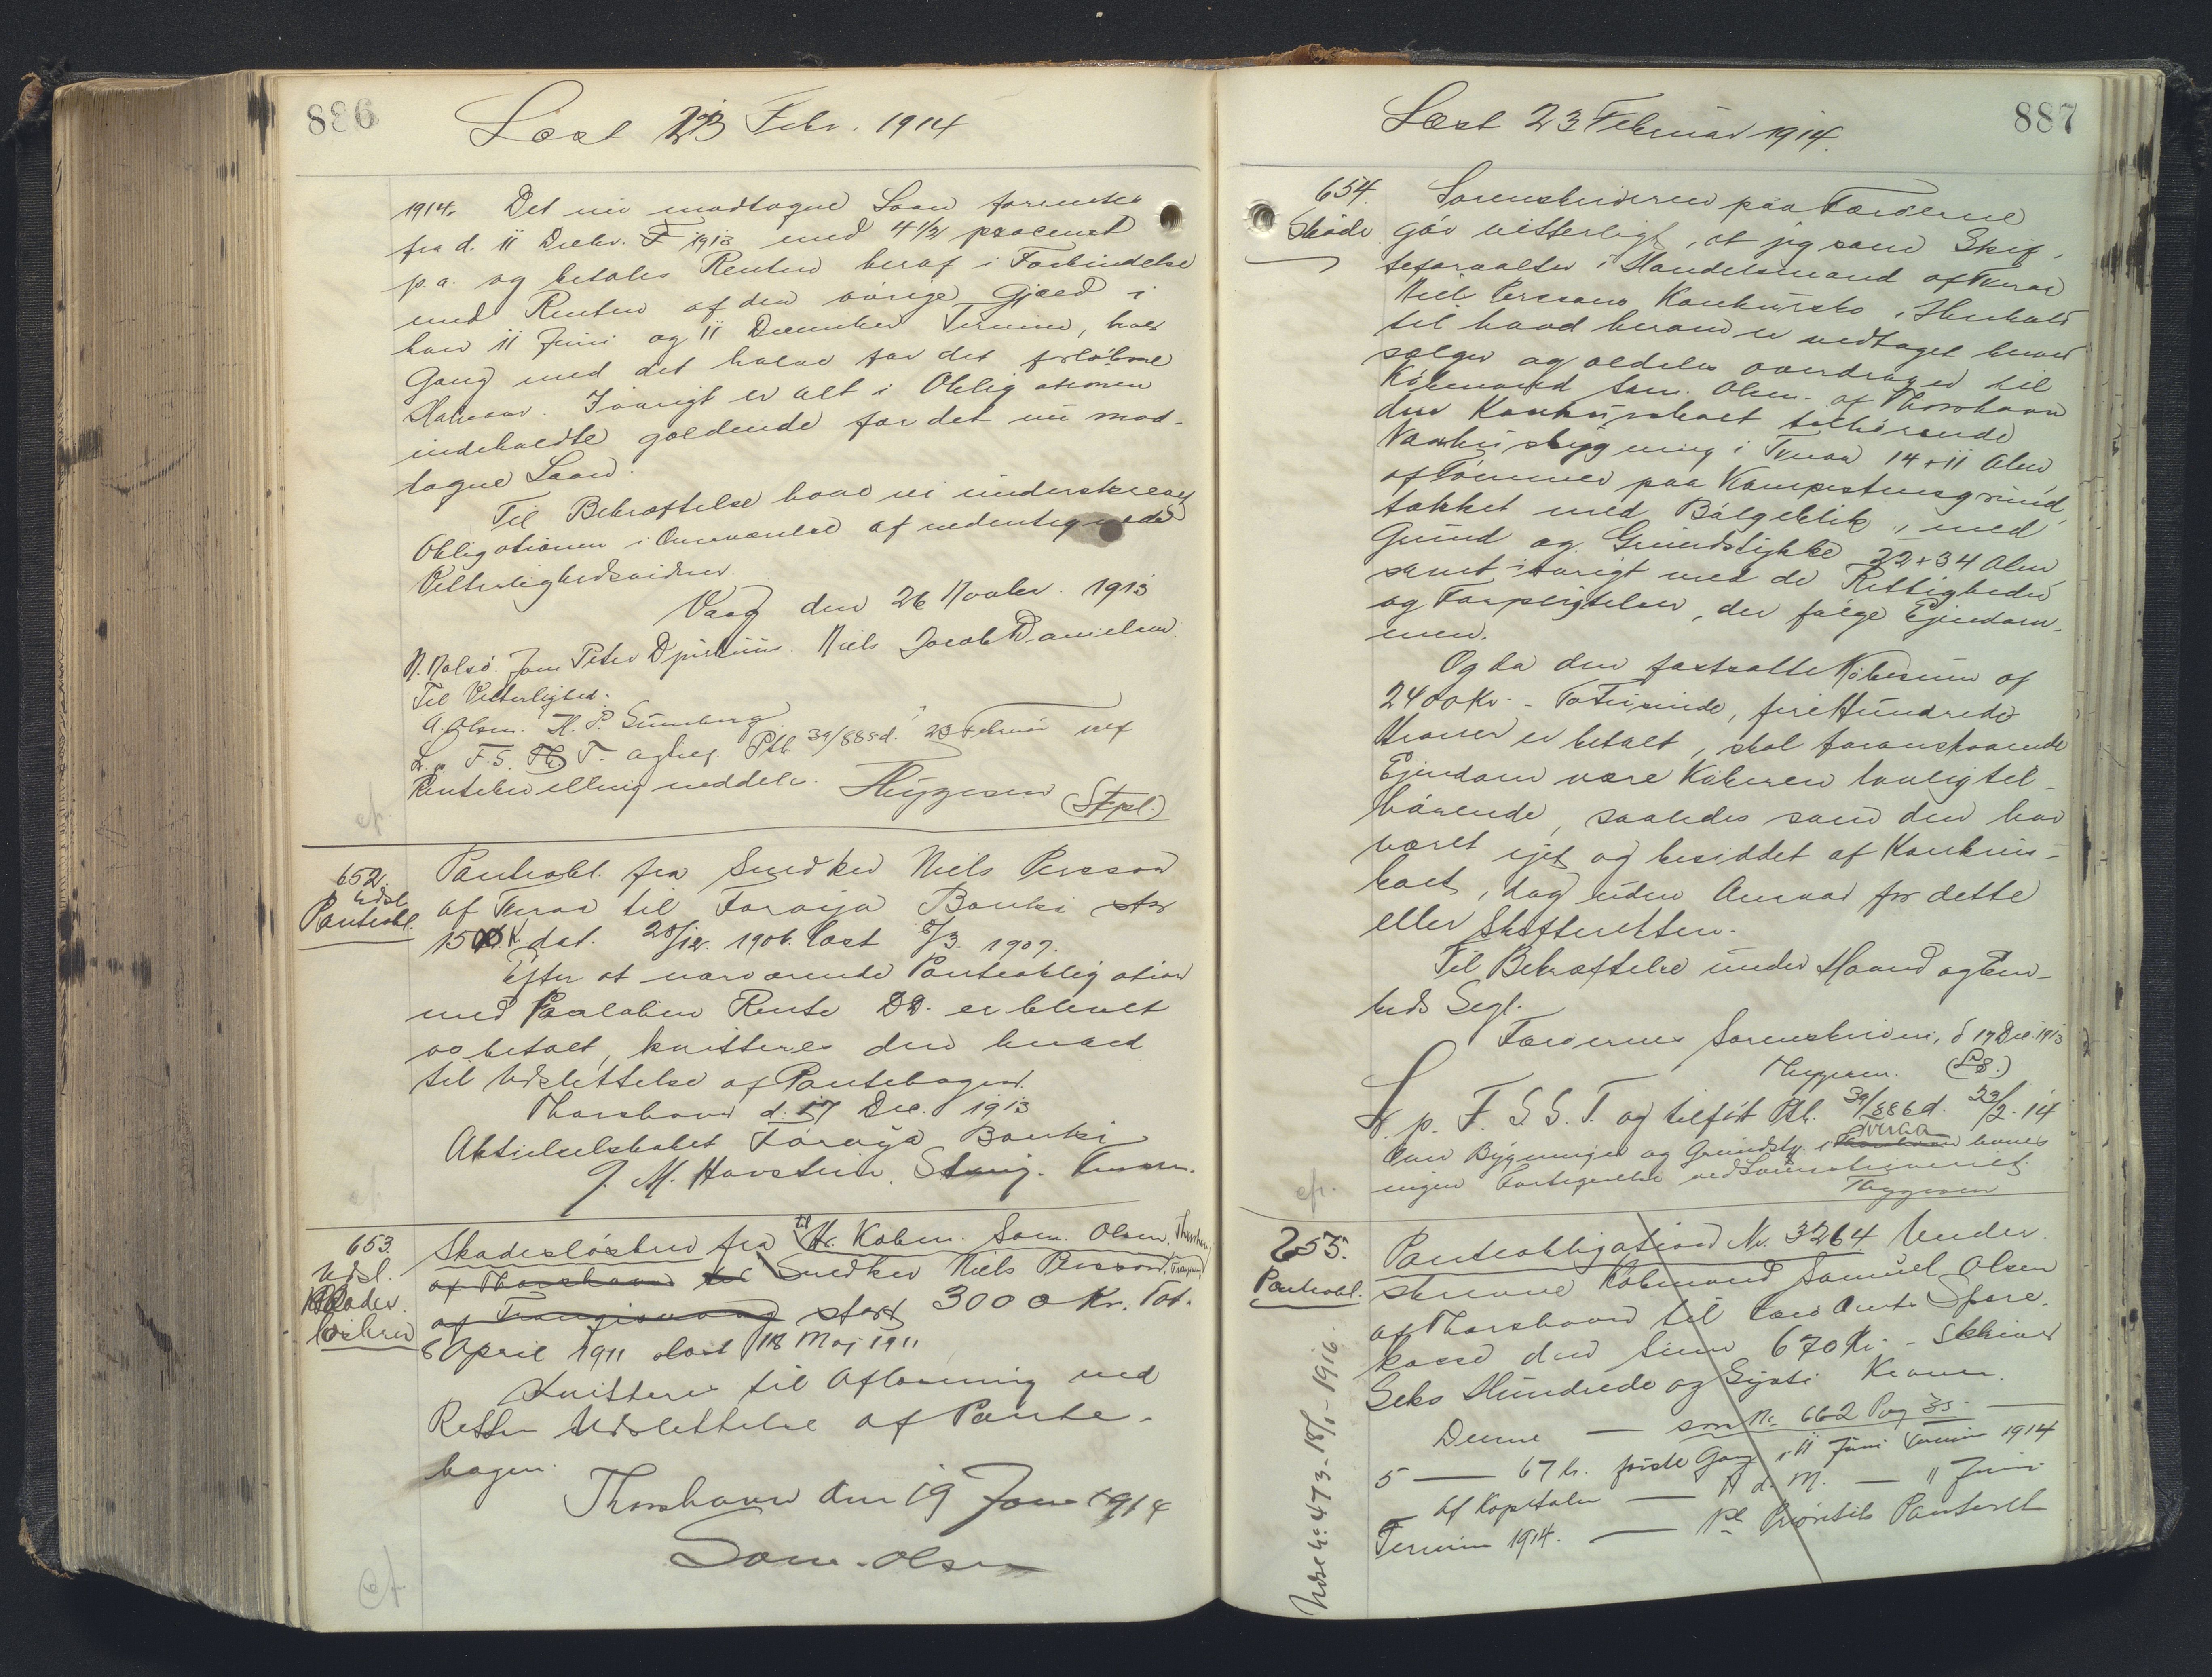 886
Læst 23 Febr. 1914
1914. Det nu modtagne Laan forrentes
fra d. 11 Decbr. 1913 med 4 1/2 procent
p.a. og betales Renten heraf i Forbindelse
med Renten af den øvrige Gjæld i
hver 11 Juni og 11 December Termin, hver
Gang med det halve for det forløbne
Halvaar. Iøvrigt er alt i Obligationen
indeholdte gældende for det nu mod-
tagne Laan.
Til Bekræftelse have vi underskrevet
Obligationen i Overværelse af undertegnede
Vitterlighedsvidner.
Vaag den 26 Novbr. 1913
N. Nolsø. Joen Peter Djurhuus. Niels Jacob Danielsen.
Til Vitterlighed:
A. Olsen. H. P. Sumberg
L. p. F. S. T. og tilf. Ptb. 39/885 d. 23 Februar 1914
Rentebevilling meddelt. Thygesen (Stpl.)
652.
Udsl.
Panteobl.
Panteobl. fra Snedker Niels Persson
af Tveraa til Føroya Banki stor
1500 K. dat. 28/12. 1906. læst 8/3. 1907.
Efter at nærværende Panteobligation
med Paaløben Rente DD. er blevet
os betalt, kvitteres den herved
til Udslettelse af Pantebogen.
Thorshavn d. 17 Dec. 1913
Aktieselskabet Føroya Banki
J. M. Havsteen.
653.
Udsl.
Skades
løsbrev
Skadesløsbrev fra til Hr. Købm. Sam. Olsen, Thorshavn
af Thorshavn til Snedker Niels Persson, Trangisv
af Trangisvaag stort 3000 Kr. Dat.
6 April 1911 læst 18 Maj 1911
Kvitteres til Aflæsning ved
Retten Udslettelse af Pante-
bogen.
Thorshavn den 19 Jan 1914
Sam. Olsen
887
Læst 23 Februar 1914.
654.
Skøde.
Sorenskriveren paa Færøerne
gør vitterligt, at jeg som Skif-
teforvalter i Handelsmand af Tveraa
Niels Perssons Konkursbo i Henhold
til hvad herom er vedtaget herved
sælger og aldeles overdrager til
Købmand Sam. Olsen af Thorshavn
den Konkursboet tilhørende
Vaanhusbygning i Tveraa 14 + 11 Alen
af Tømmer paa Kampestensgrund,
takket med Bølgeblik, med
Grund og Grundstykke 22 + 34 Alen
samt iøvrigt med de Rettigheder
og Forpligtelser, der følge Ejendom-
men.
Og da den fastsatte Købesum af
2400 Kr. - Totusinde, fire Hundrede
Kroner er betalt, skal foranstaaende
Ejendom være Køberen lovligtil-
hørende, saaledes som den har
været ejet og besiddet af Konkurs-
boet, dog uden Ansvar for dette
eller Skifteretten.
Til Bekræftelse under Haand og Em-
beds Segl.
Færøernes Sorenskriveri, d 17 Dec. 1913
Thygesen. (LS.)
L. p. F. S. S. T. og tilført Ptb. 39/886 d. 23/2. 14
Over Bygningen og Grundsty. i Thorshavn Tveraa haves
ingen Fortegnelse ved Sorenskriveriet.
Thygesen
655.
Panteobl.
Udsl. No. 473 - 18/1 - 1916
Panteobligation Nr. 3264 Under
skrevne Købmand Samuel Olsen
af Thorshavn til Færø Amts Spare-
kasse den Sum 670 Kr. - Skriver
Seks Hundrede og Systi Kroner.
Denne — som Nr. 662 Pag 35 —
5 — 67 h. første Gang i 11 Juni Termin 1914
af Kapitalen — A d. M. — 11 Juni
Termin 1914. — 1ste Prioritets Panteret